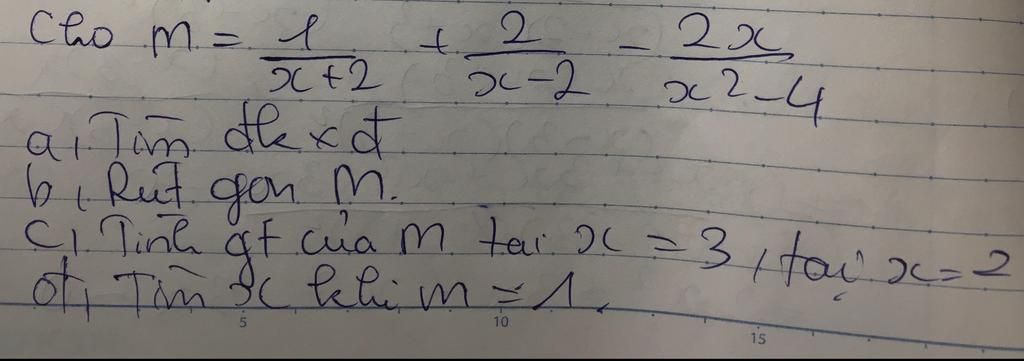 Cho M = 1/(x+2) + 2/(x-2) - 2x/(x²-4)
a, Tìm đkxđ
b, Rút gọn M.
c, Tính gt của M tại x = 3, tại x = 2
d, Tìm x khi M = 1.
5 10 15